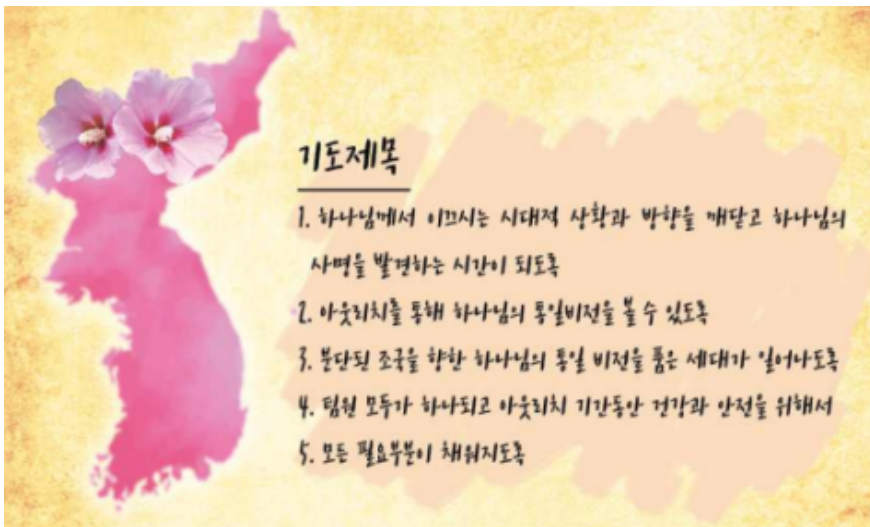 기도제목
1. 하나님께서 이끄시는 시대적 상황과 방향을 깨닫고 하나님의
사명을 발견하는 시간이 되도록
2. 아웃리치를 통해 하나님의 통일비전을 볼 수 있도록
3. 분단된 조국을 향한 하나님의 통일 비전을 품은 세대가 일어나도록
4. 팀원 모두가 하나되고 아웃리치 기간동안 건강과 안전을 위해서
5. 모든 필요부분이 채워지도록